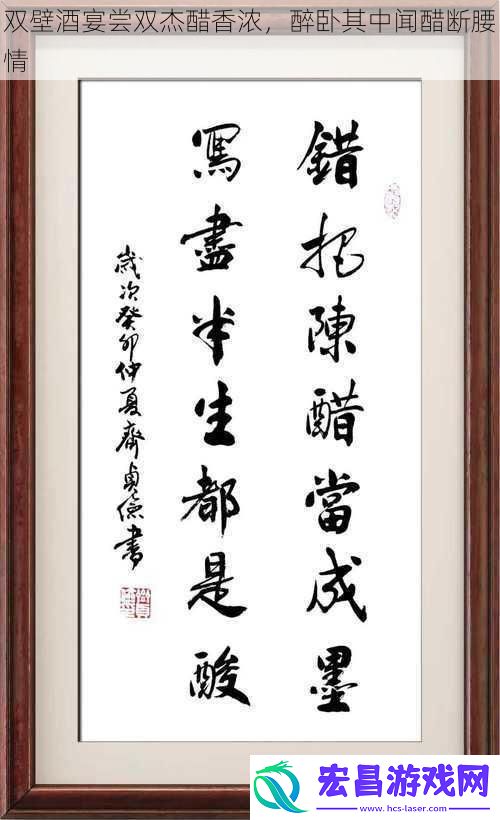 双壁酒宴尝双杰醋香浓，醉卧其中闻醋断腰
情
錯把陳醋當成墨
寫盡半生都是酸
歲次癸卯仲夏齊貞儉書
宏昌游戏网
www.hcs-laser.com